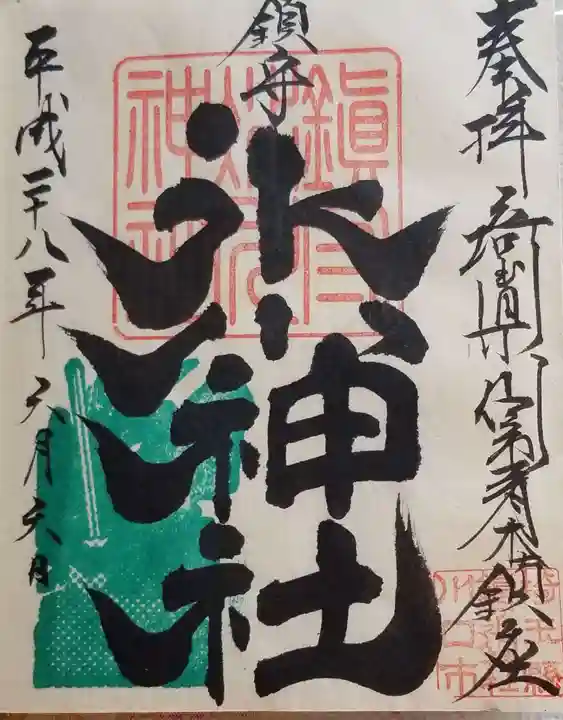 奉拝
鎮座
鎮守
氷川神社
平成二十八年六月六日
鎮守氷川神社
埼玉縣
川口市